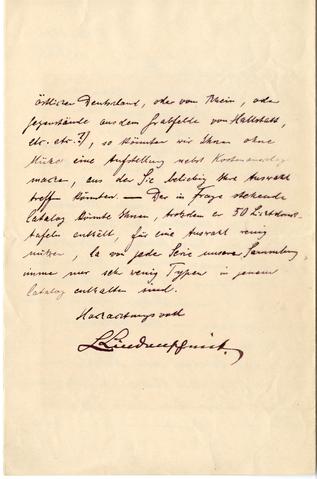 östlichen Deutschland, oder vom Rhein, oder
Gegenstände aus dem Grabfelde von Hallstatt,
etc. etc.?), so könnten wir Ihnen ohne
Mühe eine Aufstellung nebst Kostenanschlag
machen, aus der Sie beliebig Ihre Auswahl
treffen könnten. — Der in Frage stehende
Catalog könnte Ihnen, trotzdem er 50 Lichtdruck-
tafeln enthält, für eine Auswahl wenig
nützen, da von jeder Serie unserer Sammlung
immer nur sehr wenig Typen in jenem
Catalog enthalten sind.
Hochachtungsvoll
L Lindenschmit.